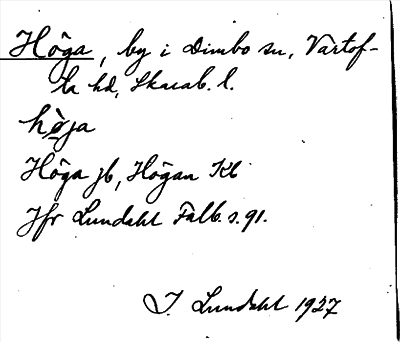 Höga, by i Dimbo sn, Vartof-
ta hd, Skarab. l.
hö̀ja
Höga jb, Högan Kb
Jfr Lundahl Falb. s. 91.
I. Lundahl 1927